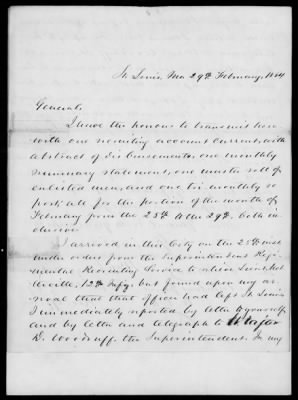 St. Louis, Mo 29th February, 1864
General,
I have the honour to transmit here
with one recruiting account current, with
abstract of disbursements, one monthly
summary statement, one muster roll of
enlisted men, and one tri monthly re
port, all for the portion of the month of
February from the 25th to the 29th both in
clusive.
I arrived in this City on the 25th inst
under orders from the Superintendent Regi-
mental Recruiting Service to relieve Lieut.
12th Infy. but found upon my ar-
rival that that officer had left St. Louis
I immediately reported by letter to yourself
and by letter and telegraph to Major
D. Woodruff the Superintendent. In my